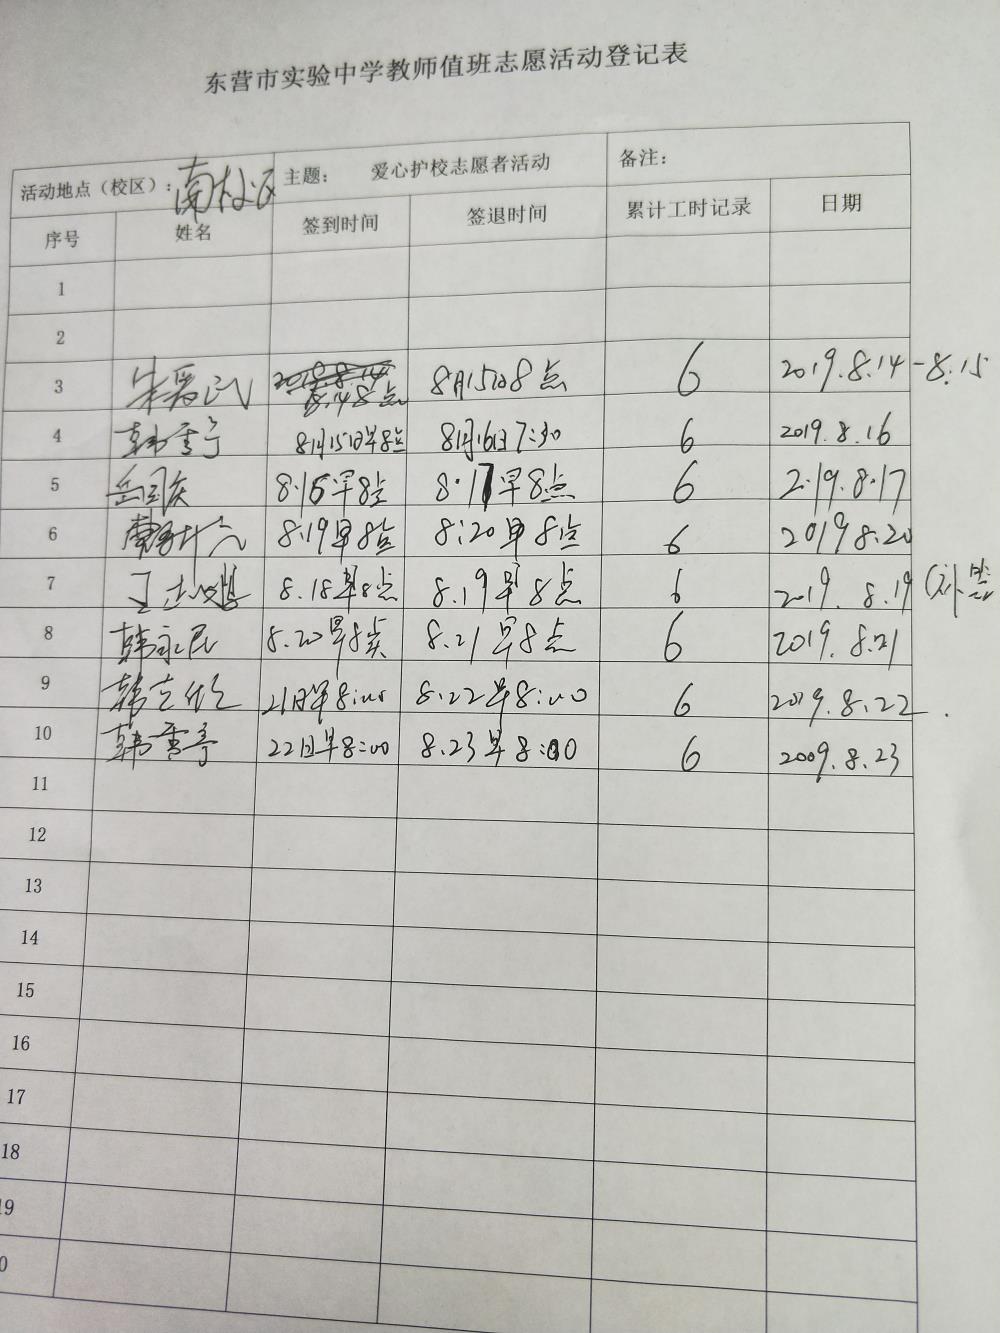 东营市实验中学教师值班志愿活动登记表
活动地点（校区）：南校区 主题： 爱心护校志愿者活动 备注：
序号 姓名 签到时间 签退时间 累计工时记录 日期
1
2
3 8.14 8点 8月15日8点 6 2019.8.14-8.15
4 韩秀宁 8月15日早8点 8月16日7:30 6 2019.8.16
5 岳国庆 8.16早8点 8.17早8点 6 2019.8.17
6 8.19早8点 8:20早8点 6 2019 8.20
7 王 8.18早8点 8.19早8点 6 2019. 8.19（补签
8 韩永民 8.20早8点 8.21早8点 6 2019. 8.21
9 韩 21日早8:00 8.22早8:00 6 2019.8.22.
10 韩秀亭 22日早8:00 8.23早8:00 6 2009.8.23
11
12
13
14
15
16
17
18
19
0